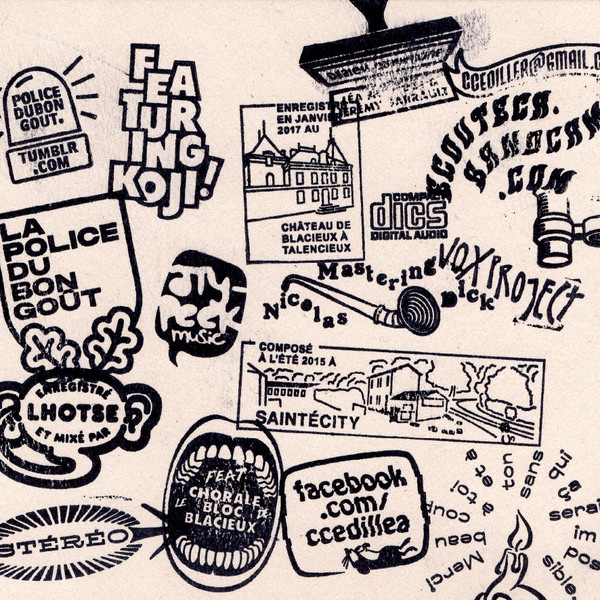 POLICE
DUBON
GOUT.
TUMBLR
.COM
FEA
TUR
ING
KOJI!
ENREGISTRÉ
EN JANVIER
2017 AU
CHÂTEAU DE
BLACIEUX À
TALENCIEUX
CCEDILLER@GMAIL.C
BANDCAM
.COM
COMPACT
dics
DIGITAL AUDIO
LA
POLICE
DU
BON
GOÛT
music
Mastering
Nicolas
Dick
VOXPROJECT
COMPOSÉ
À L'ÉTÉ 2015 À
SAINTÉCITY
ENREGISTRÉ
LHOTSE
ET MIXÉ PAR
STÉRÉO
FEAT
LE
CHORALE
DE
BLOC
BLACIEUX
facebook
.com/
ccedillea
Merci
beau
coup
à toi
et à
ton
sans
qui
ça
serai
im
pos
sible.